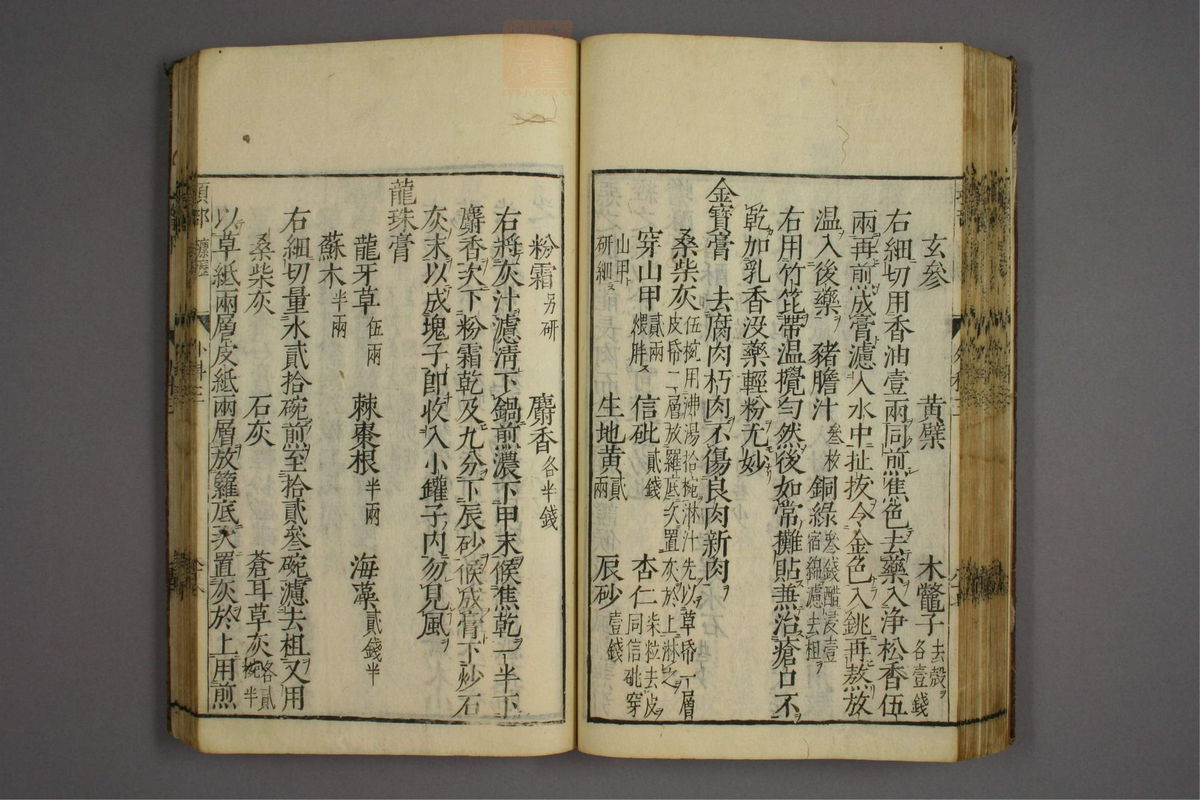 玄參　黃檗　木鼈子去殼各壹錢
右細切用香油壹兩同煎焦色去藥入淨松香伍
兩再煎成膏濾入水中扯拔令金色入銚再熬放
溫入後藥　豬膽汁叄枚　銅綠叄錢醋浸壹宿綿濾去柤
右用竹箆帶溫攪勻然後如常攤貼兼治瘡口不
乾加乳香沒藥輕粉尤妙
金寶膏　去腐肉朽肉不傷良肉新肉
桑柴灰伍椀用沸湯拾椀淋汁先以草帋一層皮帋一層放羅底次置灰於上淋之
穿山甲貳兩煨胖　信砒貳錢　杏仁柒粒去皮同信砒穿
山甲研細　生地黃貳兩　辰砂壹錢
粉霜另研　麝香各半錢
右將灰汁濾淸下鍋煎濃下甲末候焦乾一半下
麝香次下粉霜乾及九分下辰砂候成膏下炒石
灰末以成塊子卽收入小罐子內勿見風
龍珠膏
龍牙草伍兩　棘棗根半兩　海藻貳錢半
蘇木半兩
右細切量水貳拾碗煎至拾貳叄碗濾去柤又用
桑柴灰　石灰　蒼耳草灰各貳椀半
以草紙兩層皮紙兩層放籮底次置灰於上用煎